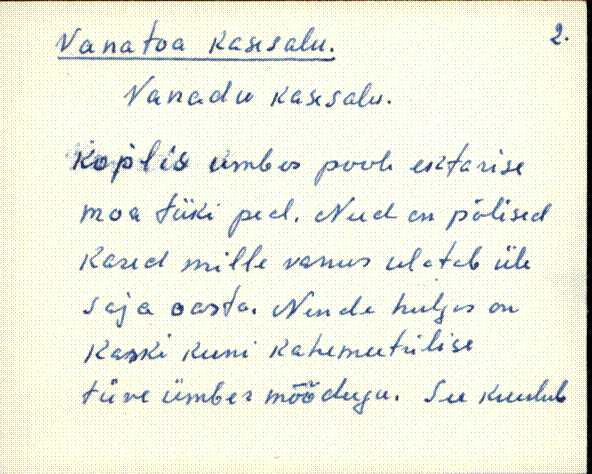 Vanatoa kasesalu.
2.
Vanadu kasesalu.
Koplis umbes poole ektarise
moa tüki peal. Need on põlised
Kased mille vanus ulatab üle
saja aasta. Nende hulgas on
Kaski kuni kahemeetrilise
tüve ümber mõõduga. See kuulub